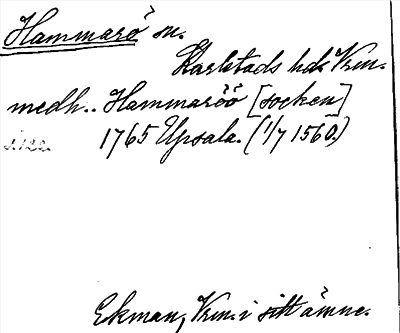 Hammarö sn.
Karlstads hd. Vrm.
medh.. Hammaröö [socken]
1765 Upsala. (1/7 1560.)
s. 122.
Ekman, Vrm. i sitt ämne.